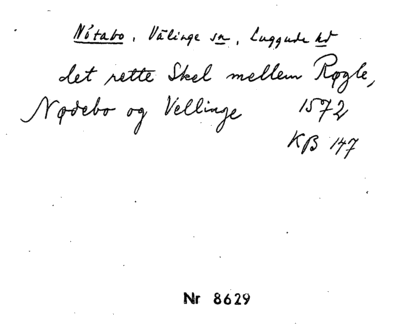 Nötabo, Välinge sn, Luggude hd
det rette Skel mellem Røgle,
Nødebo og Vellinge 1572
KB 147
Nr 8629